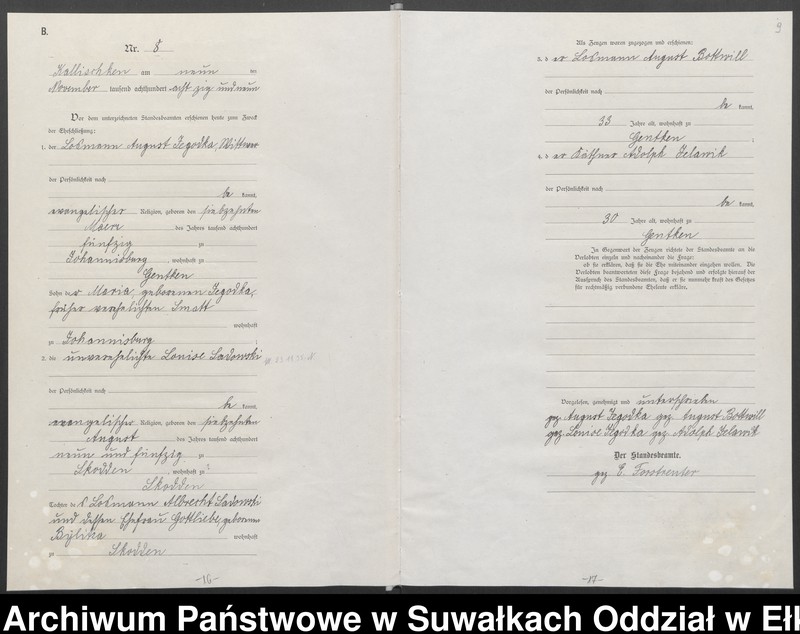 B.
Nr. 8
Kallischken am neun ten
November tausend achthundert acht zig und neun
Vor dem unterzeichneten Standesbeamten erschienen heute zum Zweck
der Eheschließung:
1. der Losmann August Jegodka, Wittwer
der Persönlichkeit nach
be kannt,
evangelischer Religion, geboren den siebzehnten
Maerz des Jahres tausend achthundert
fünfzig zu
Johannisburg, wohnhaft zu
Gentken
Sohn der Maria, geborenen Jegodka,
früher verehelichten Smatt
wohnhaft
zu Johannisburg;
2. die unverehelichte Louise Sadowski
der Persönlichkeit nach
be kannt,
evangelischer Religion, geboren den siebzehnten
August des Jahres tausend achthundert
neun und fünfzig zu
Skodden, wohnhaft zu
Skodden
Tochter des Losmann Albrecht Sadowski
und dessen Ehefrau Gottliebe, geborene
Bylitza wohnhaft
zu Skodden
-16-
9
Als Zeugen waren zugezogen und erschienen:
3. der Losmann August Bottwill
der Persönlichkeit nach
be kannt,
33 Jahre alt, wohnhaft zu
Gentken;
4. der Käthner Adolph Jelawik
der Persönlichkeit nach
be kannt,
30 Jahre alt, wohnhaft zu
Gentken
In Gegenwart der Zeugen richtete der Standesbeamte an die
Verlobten einzeln und nacheinander die Frage:
ob sie erklären, daß sie die Ehe miteinander eingehen wollen. Die
Verlobten beantworteten diese Frage bejahend und erfolgte hierauf der
Ausspruch des Standesbeamten, daß er sie nunmehr kraft des Gesetzes
für rechtmäßig verbundene Eheleute erkläre.
Vorgelesen, genehmigt und unterschrieben
gez. August Jegodka gez. August Bottwill
gez. Louise Jegodka gez. Adolph Jelawik
Der Standesbeamte.
gez E. Forstreuter
-17-
Archiwum Państwowe w Suwałkach Oddział w Ełk